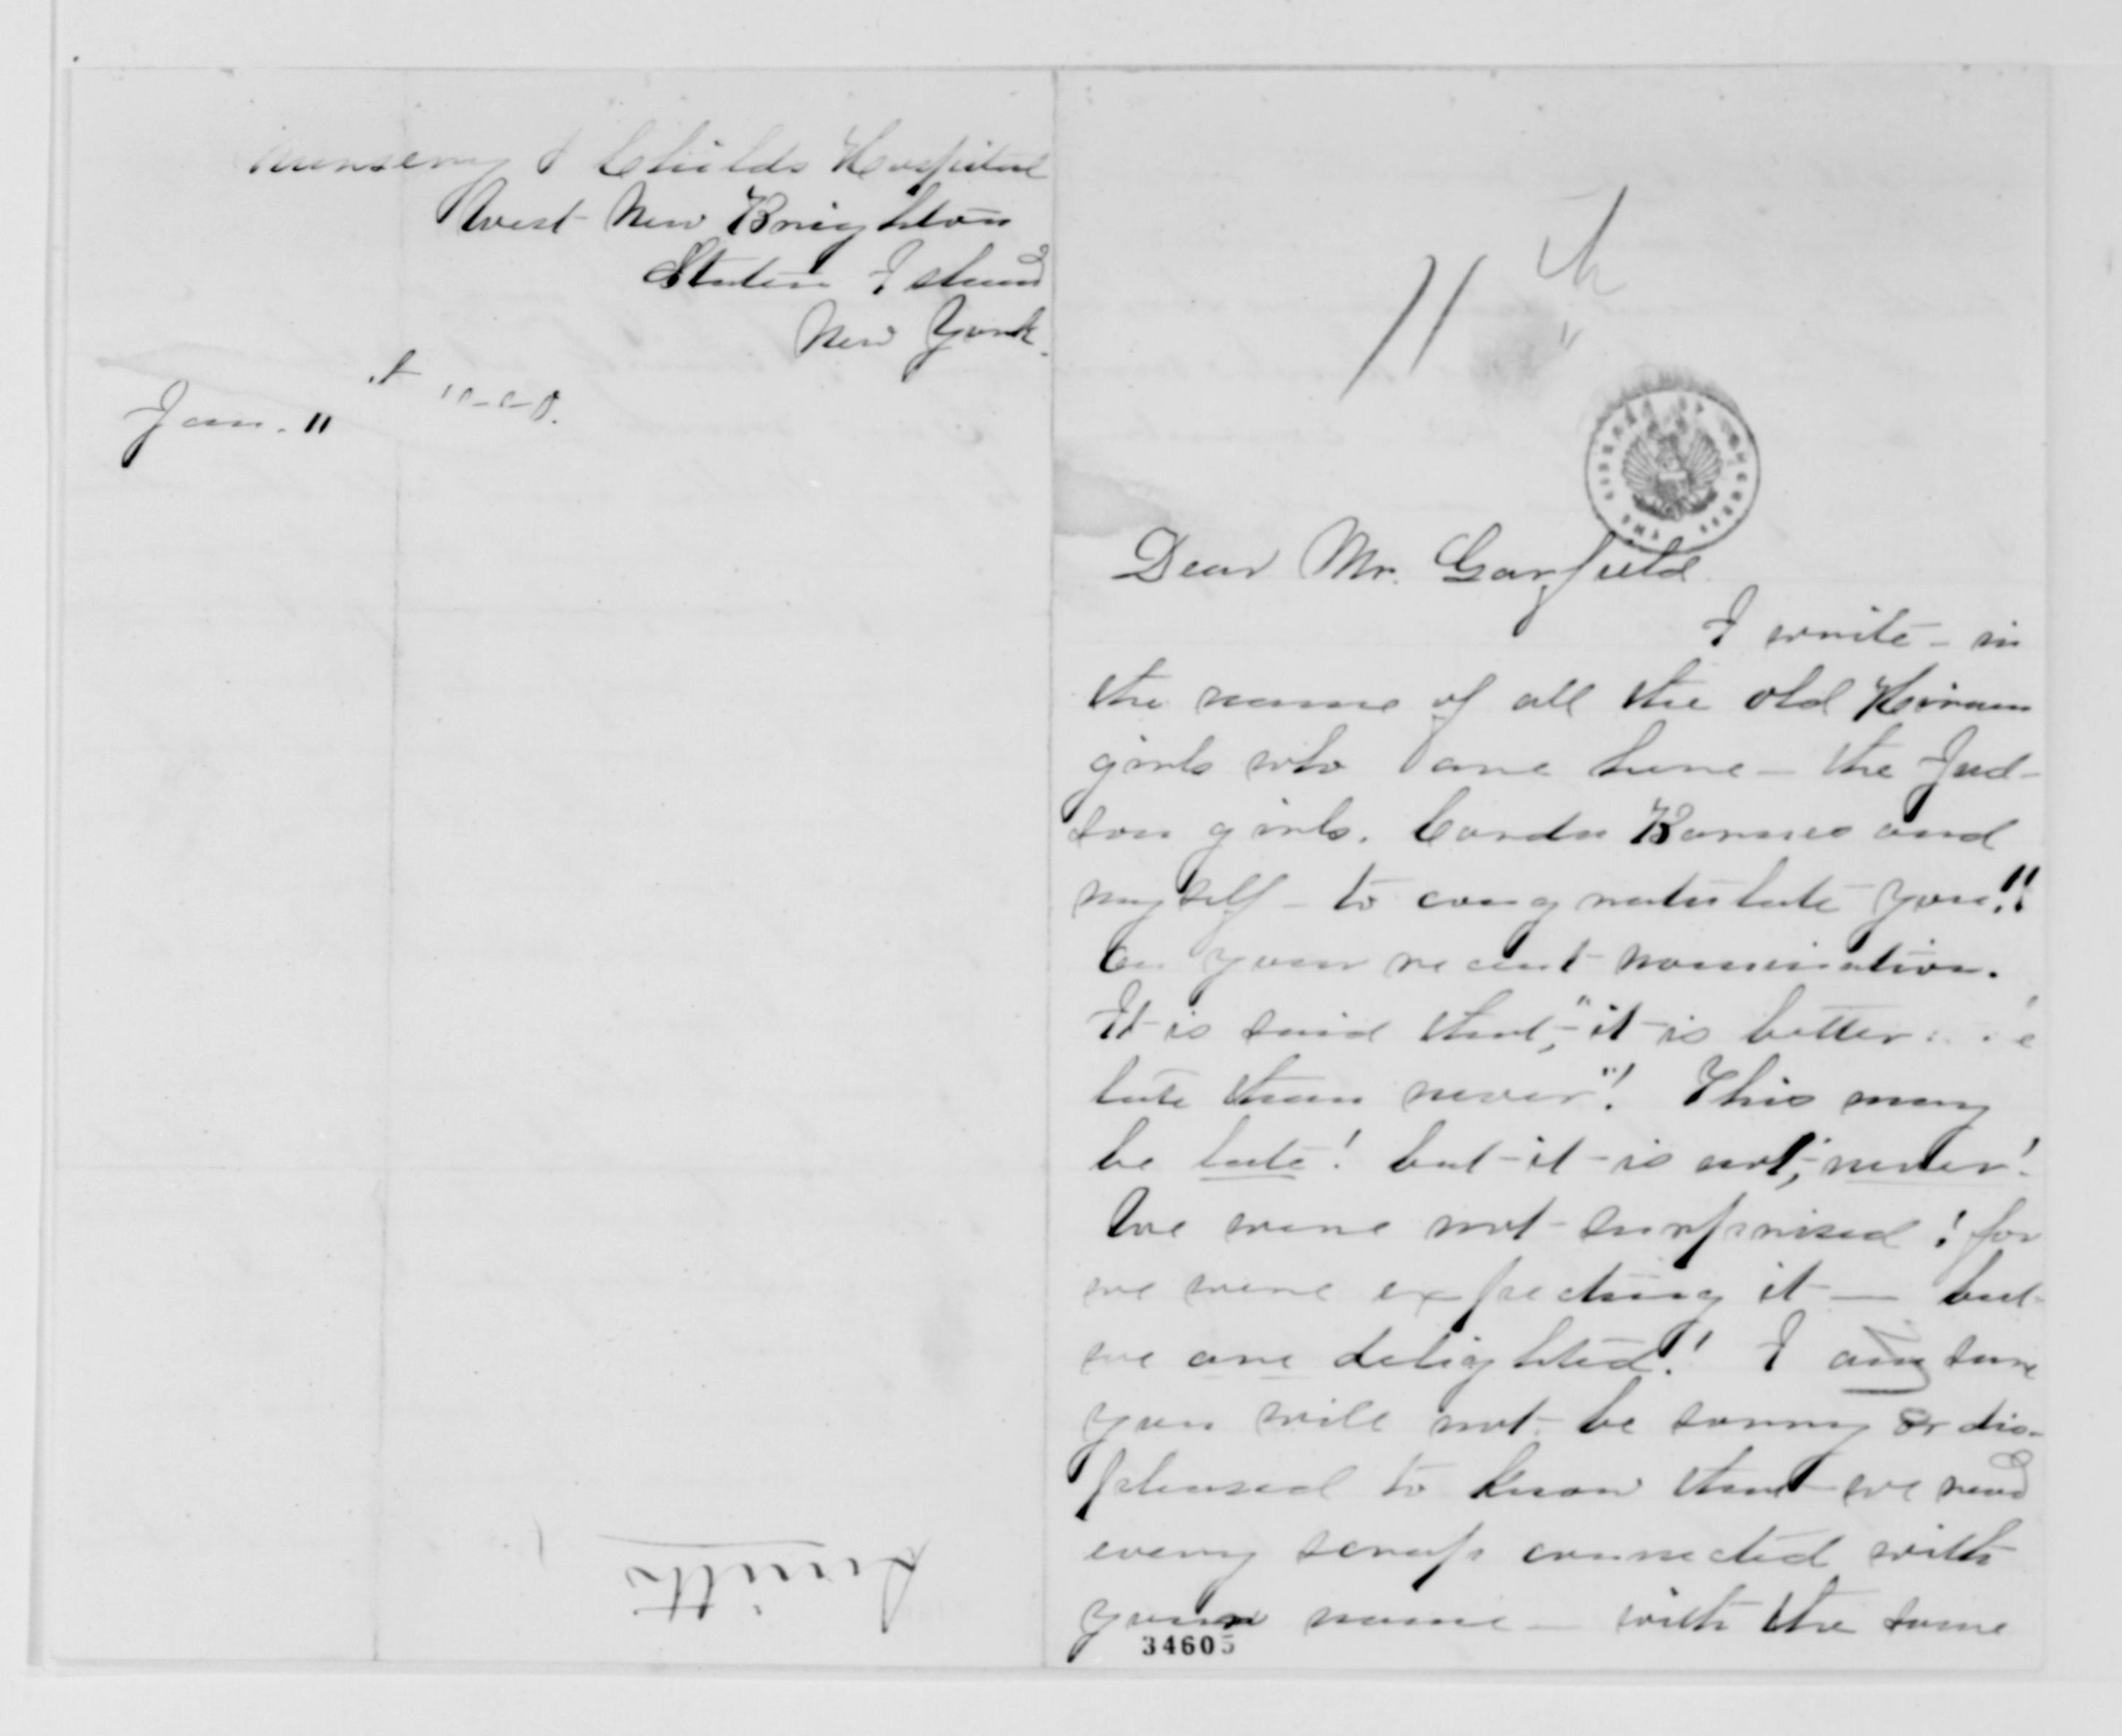 Nursery & Childs Hospital
West New Brighton
Staten Island
New York.
Jan. 11
Smith
11th
THE LIBRARY OF CONGRESS
Dear Mr. Garfield
I write - in
the name of all the old Hiram
girls who are here - the Jud-
son girls. Corda Barnes and
myself - to congratulate you!!
On your recent nomination.
It is said that, "it is better
late than never"! This may
be late! but it is not, never!
We were not surprised! for
we were expecting it — but
we are delighted! I am sure
you will not be sorry or dis-
pleased to know that we read
every scrap connected with
your name — with the same
34605